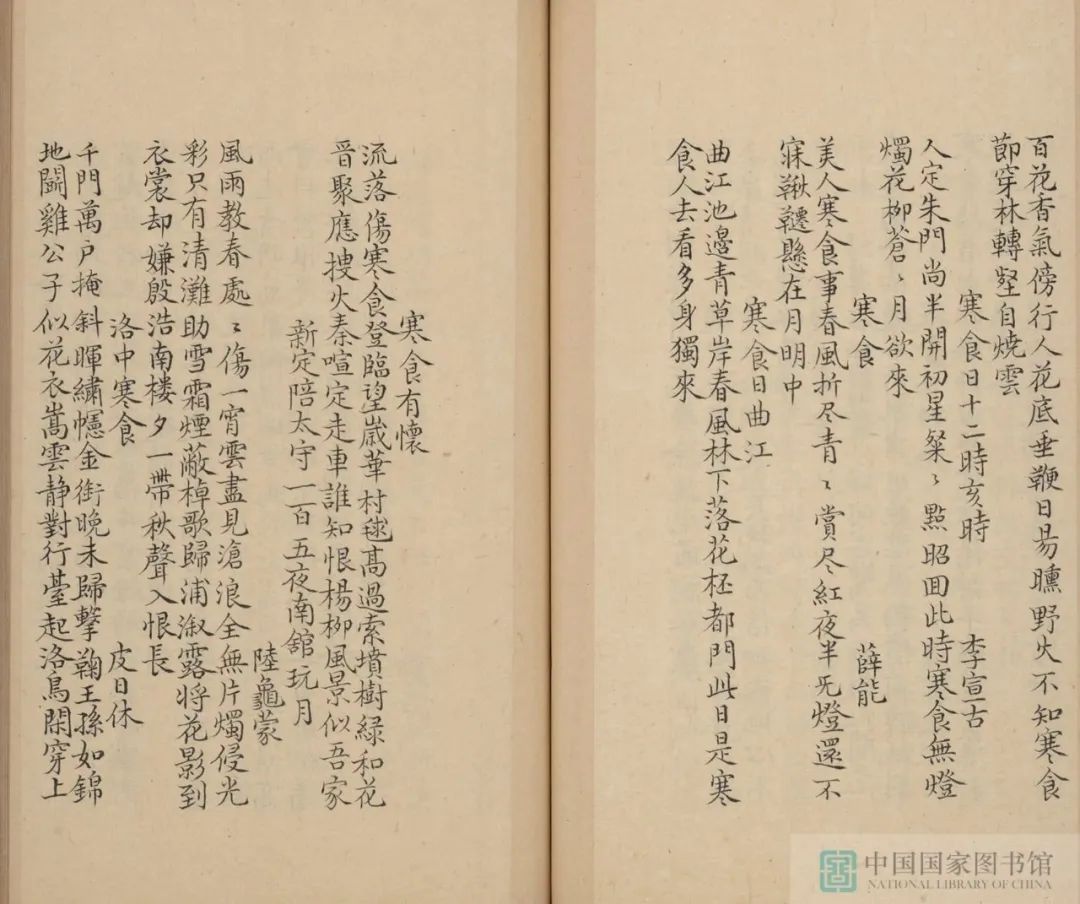 百花香氣傍行人花底垂鞭日昜曛野火不知寒食
節穿林轉壑自燒雲
寒食日十二時亥時
李宣古
人定朱門尚半開初星粲〻點昭囬此時寒食無燈
燭花柳蒼〻月欲來
寒食
薛能
美人寒食事春風折尽青〻賞尽紅夜半旡燈還不
寐鞦韆懸在月明中
寒食日曲江
曲江池邉青草岸春風林下落花柸都門此日是寒
食人去看多身獨來
寒食有懷
流落傷寒食登臨望嵗華村毬髙過索墳樹緑和花
晋聚應捜火秦喧定走車誰知恨楊栁風景似吾家
新定陪太守一百五夜南舘玩月
陸龜蒙
風雨教春處〻傷一宵雲盡見滄浪全無片燭侵光
彩只有清灘助雪霜煙蔽棹歌歸浦溆露将花影到
衣裳却嫌殷浩南楼夕一帶秋聲入恨長
洛中寒食
皮日休
千門萬户掩斜暉繡幰金衔晩未歸擊鞠王孫如錦
地鬬雞公子似花衣嵩雲静對行䑓起洛鳥閑穿上
中国国家图书馆
NATIONAL LIBRARY OF CHINA